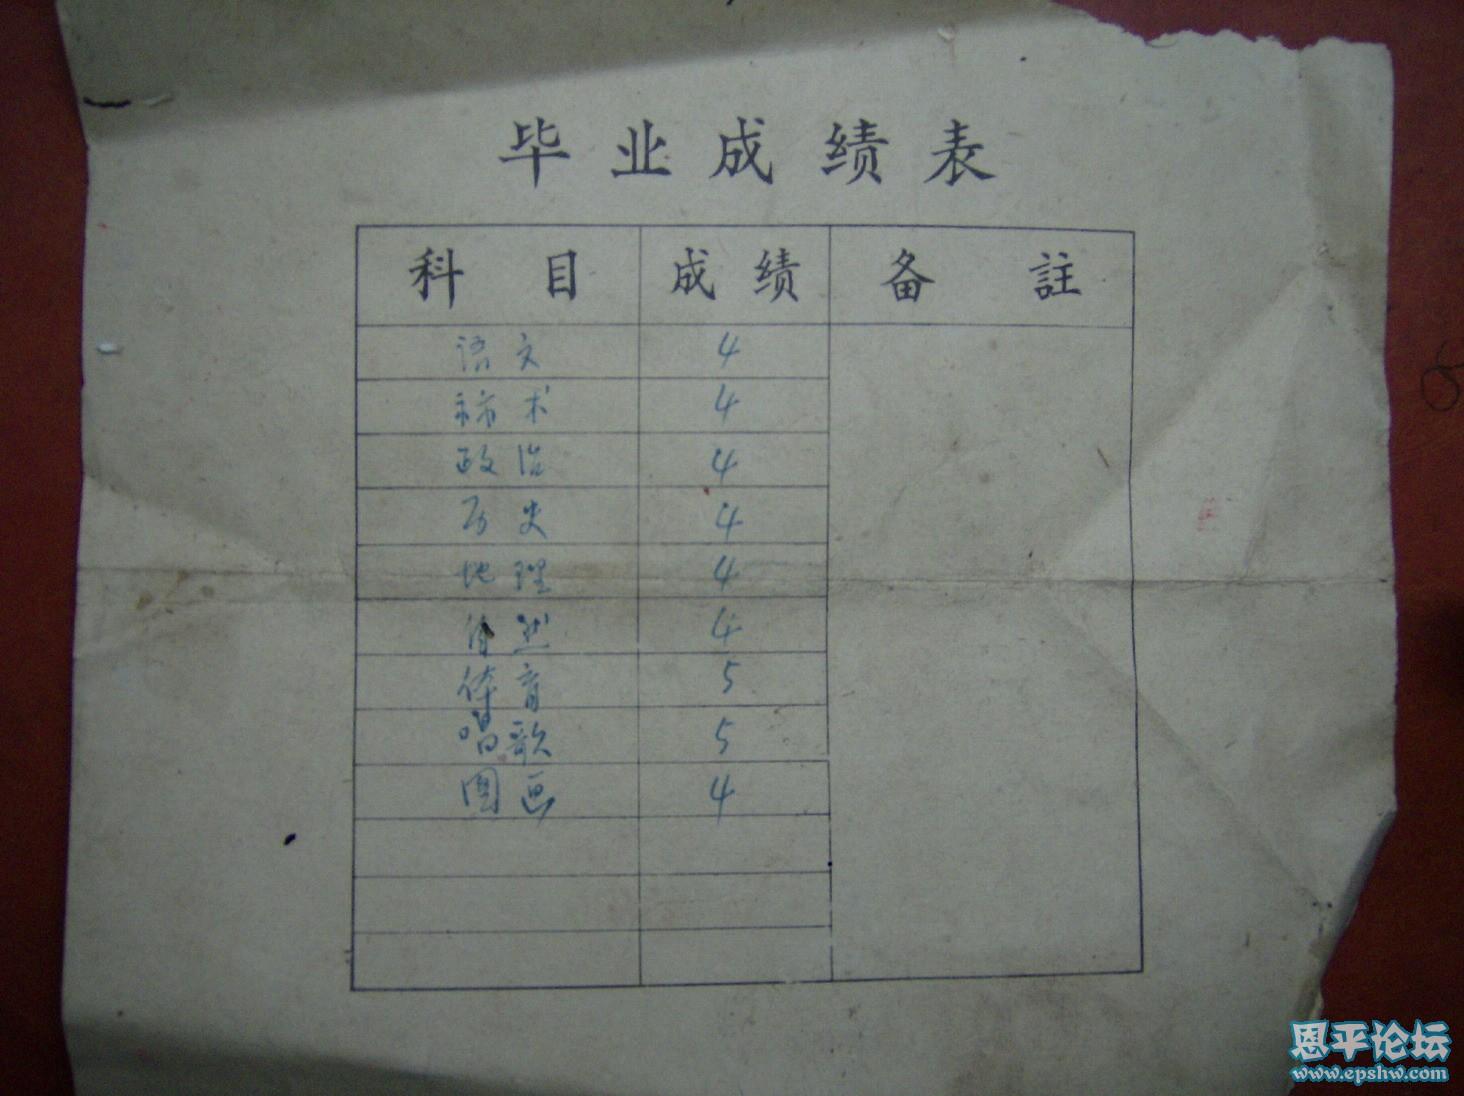 毕业成绩表
科目 成绩 备註
语文 4
祘术 4
政治 4
历史 4
地理 4
自然 4
体育 5
唱歌 5
图画 4
恩平论坛
www.epshw.com